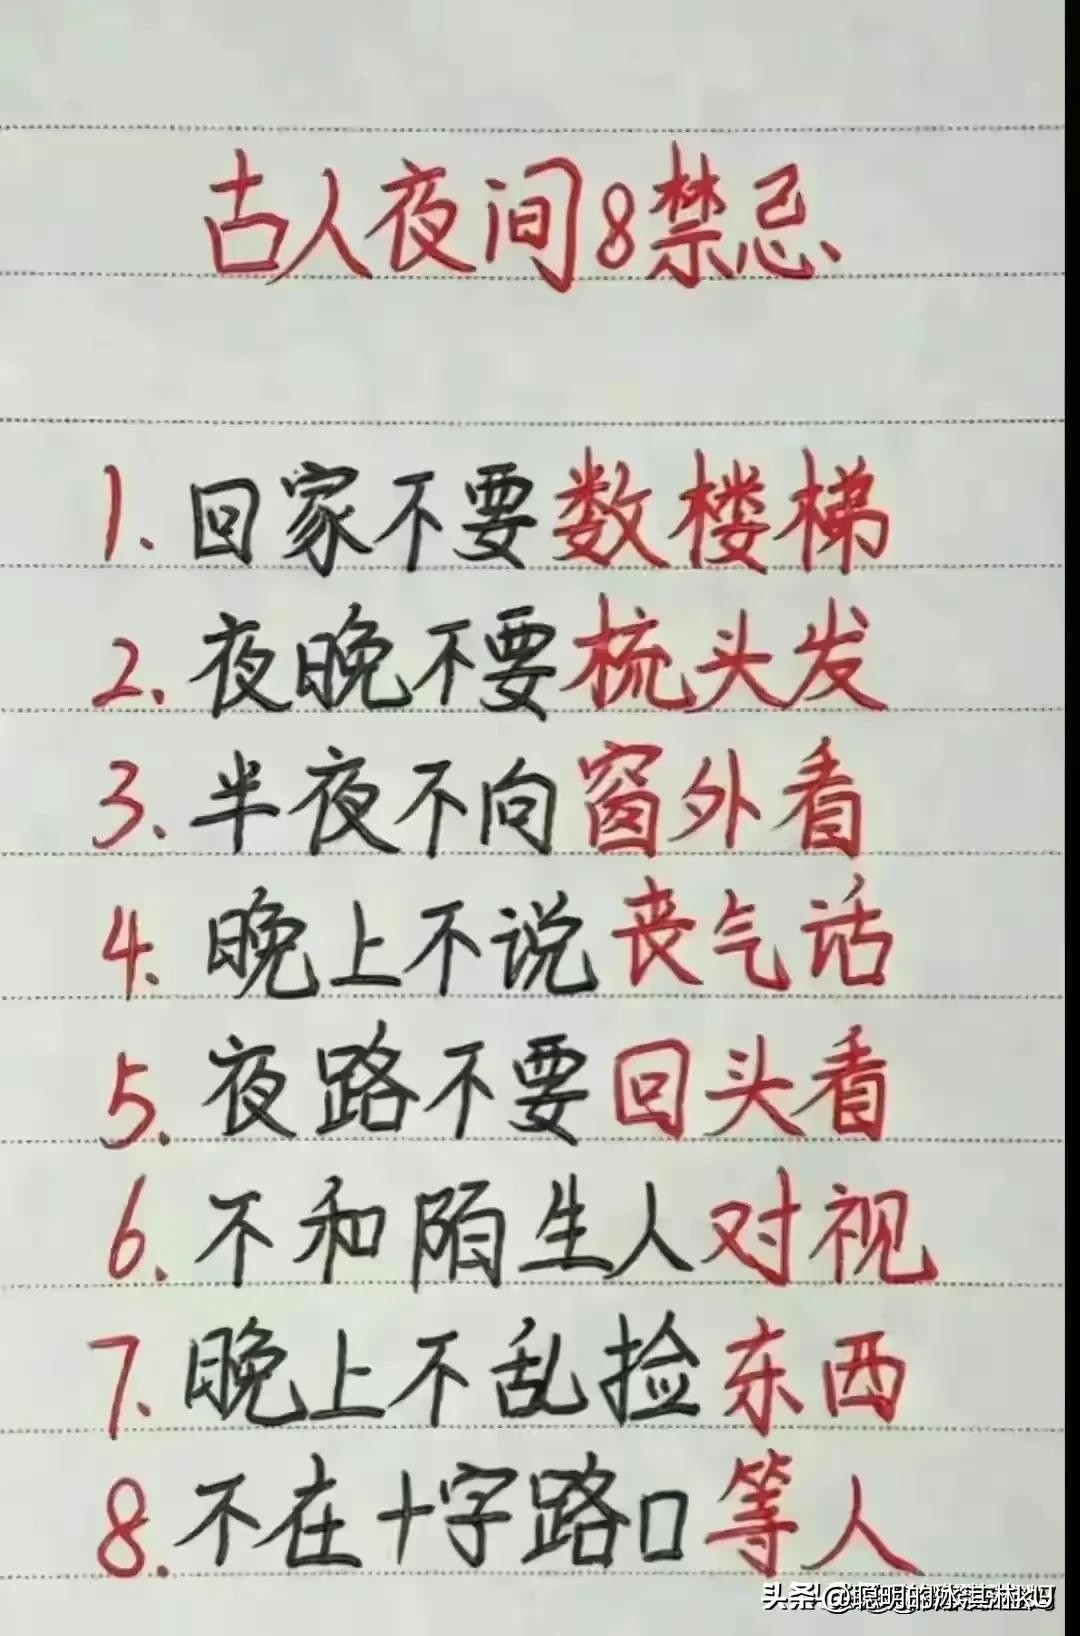 古人夜间8禁忌
1.回家不要数楼梯
2.夜晚不要梳头发
3.半夜不向窗外看
4.晚上不说丧气话
5.夜路不要回头看
6.不和陌生人对视
7.晚上不乱捡东西
8.不在十字路口等人
头条@聪明的冰淇淋